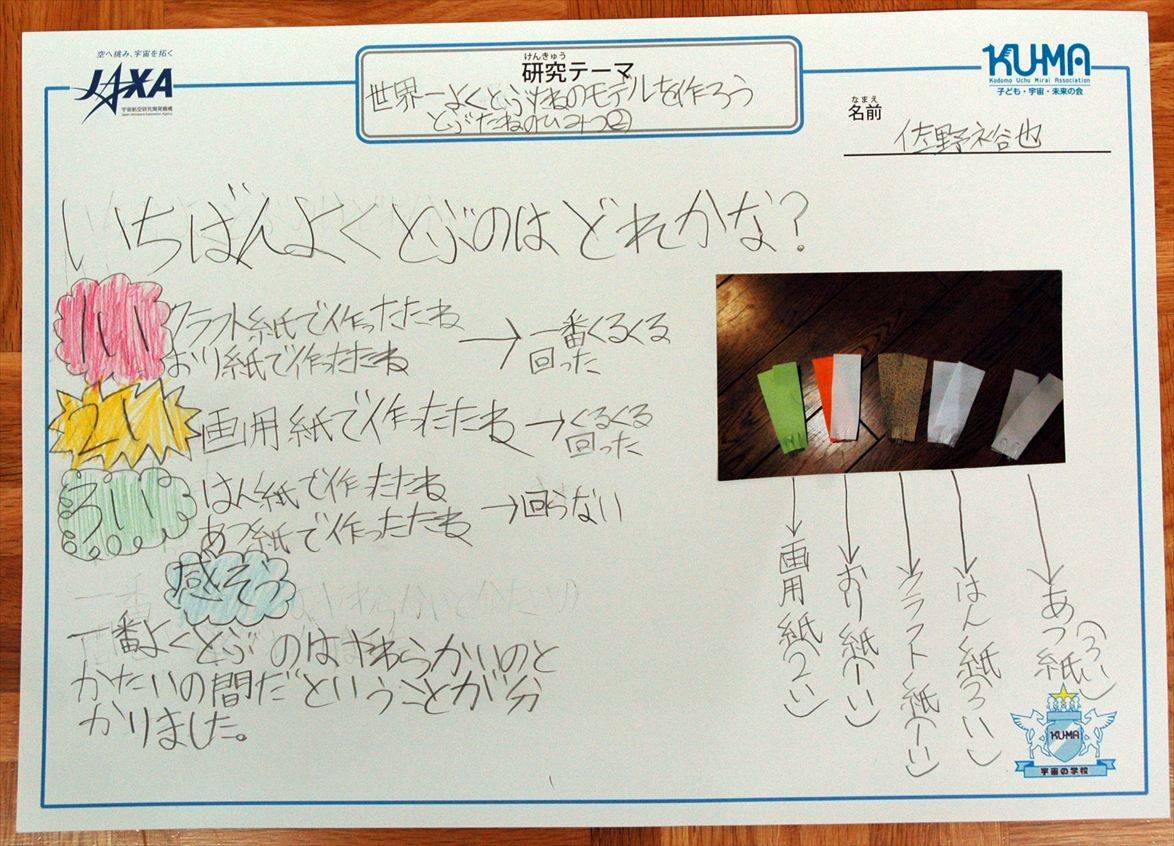 空へ挑み、宇宙を拓く
JAXA
宇宙航空研究開発機構
Japan Aerospace Exploration Agency
けんきゅう
研究テーマ
世界一よくとぶたねのモデルを作ろう
とぶたねのひみつ②
KU-MA
Kodomo Uchu Mirai Association
子ども・宇宙・未来の会
なまえ
名前
佐野裕也
いちばんよくとぶのはどれかな?
1い
クラフト紙で作ったたね
おり紙で作ったたね
→一番くるくる
回った
2い
画用紙で作ったたね
→くるくる
回った
3い
はん紙で作ったたね
あつ紙で作ったたね
→回らない
感そう
一番よくとぶのはやわらかいのと
かたいの間だということが分
かりました。
画用紙(2い)
おり紙(1い)
クラフト紙(1い)
はん紙(3い)
あつ紙(3い)
KU-MA
宇宙の学校